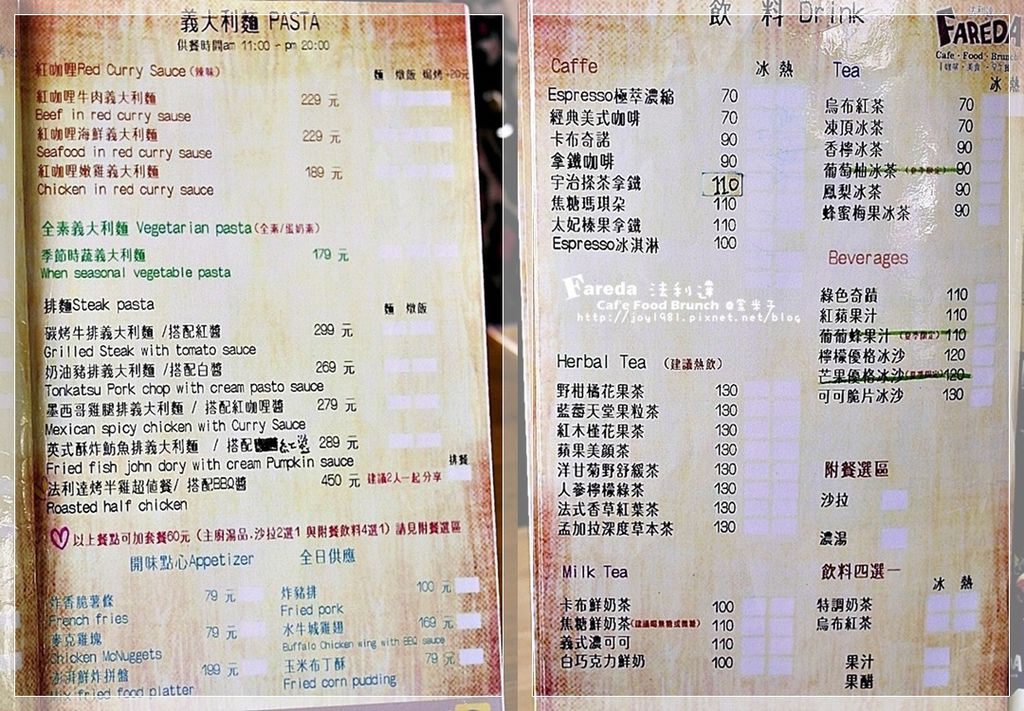 義大利麵 PASTA
供餐時間am 11:00 ~ pm 20:00
紅咖哩Red Curry Sauce(辣味) 麵 燉飯 焗烤+20元
紅咖哩牛肉義大利麵 229 元
Beef in red curry sause
紅咖哩海鮮義大利麵 229 元
Seafood in red curry sause
紅咖哩嫩雞義大利麵 189 元
Chicken in red curry sauce
全素義大利麵 Vegetarian pasta(全素/蛋奶素)
季節時蔬義大利麵 179 元
When seasonal vegetable pasta
排麵Steak pasta 麵 燉飯
碳烤牛排義大利麵 /搭配紅醬 299 元
Grilled Steak with tomato sauce
奶油豬排義大利麵 /搭配白醬 269 元
Tonkatsu Pork chop with cream pasto sauce
墨西哥雞腿排義大利麵 / 搭配紅咖哩醬 279 元
Mexican spicy chicken with Curry Sauce
英式酥炸魴魚排義大利麵 / 搭配 紅醬 289 元
Fried fish john dory with cream Pumpkin sauce 排餐
法利達烤半雞超值餐/ 搭配BBQ醬 450 元 建議2人一起分享
Roasted half chicken
以上餐點可加套餐60元 (主廚湯品.沙拉2選1 與附餐飲料4選1) 請見附餐選區
開味點心Appetizer 全日供應
炸香脆薯條 79 元
French fries
麥克雞塊 79 元
Chicken McNuggets
澎湃鮮炸拼盤 199 元
Mix fried food platter
炸豬排 100 元
Fried pork
水牛城雞翅 169 元
Buffalo Chicken wing with BBQ sauce
玉米布丁酥 79 元
Fried corn pudding
飲 料 Drink
法利達
FAREDA
Cafe·Food·Brunch
Caffe 冰 熱
Espresso極萃濃縮 70
經典美式咖啡 70
卡布奇諾 90
拿鐵咖啡 90
宇治搽茶拿鐵 110
焦糖瑪琪朵 110
太妃榛果拿鐵 110
Espresso冰淇淋 100
Tea 冰 熱
烏布紅茶 70
凍頂冰茶 70
香檸冰茶 90
葡萄柚冰茶(夏季限定) 90
鳳梨冰茶 90
蜂蜜梅果冰茶 90
Beverages
綠色奇蹟 110
紅蘋果汁 110
葡葡蜂果汁(夏季限定) 110
檸檬優格冰沙 120
芒果優格冰沙(夏季限定) 120
可可脆片冰沙 130
Fareda 法利達
Cafe Food Brunch
http://joy1981.pixnet.net/blog
Herbal Tea (建議熱飲)
野柑橘花果茶 130
藍莓天堂果粒茶 130
紅木槿花果茶 130
蘋果美顏茶 130
洋甘菊野舒緩茶 130
人蔘檸檬綠茶 130
法式香草紅葉茶 130
孟加拉深度草本茶 130
附餐選區
沙拉
濃湯
Milk Tea
卡布鮮奶茶 100
焦糖鮮奶茶(建議喝無糖或微糖) 110
義式濃可可 110
白巧克力鮮奶 100
飲料四選一 冰 熱
特調奶茶
烏布紅茶
果汁
果醋